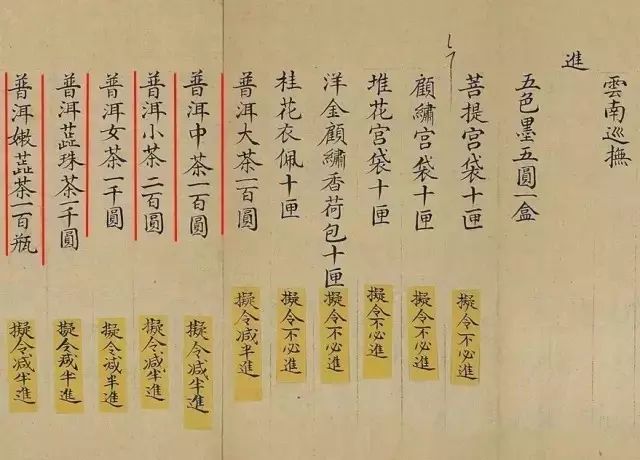 雲南巡撫
進
五色墨五圓一盒
菩提宮袋十匣
擬令不必進
顧繡宮袋十匣
擬令不必進
堆花宮袋十匣
擬令不必進
洋金顧繡香荷包十匣
擬令不必進
桂花衣佩十匣
擬令不必進
普洱大茶一百圓
擬令减半進
普洱中茶一百圓
擬令减半進
普洱小茶二百圓
擬令减半進
普洱女茶一千圓
擬令减半進
普洱蕋珠茶一千圓
擬令减半進
普洱嫩蕋茶一百瓶
擬令减半進